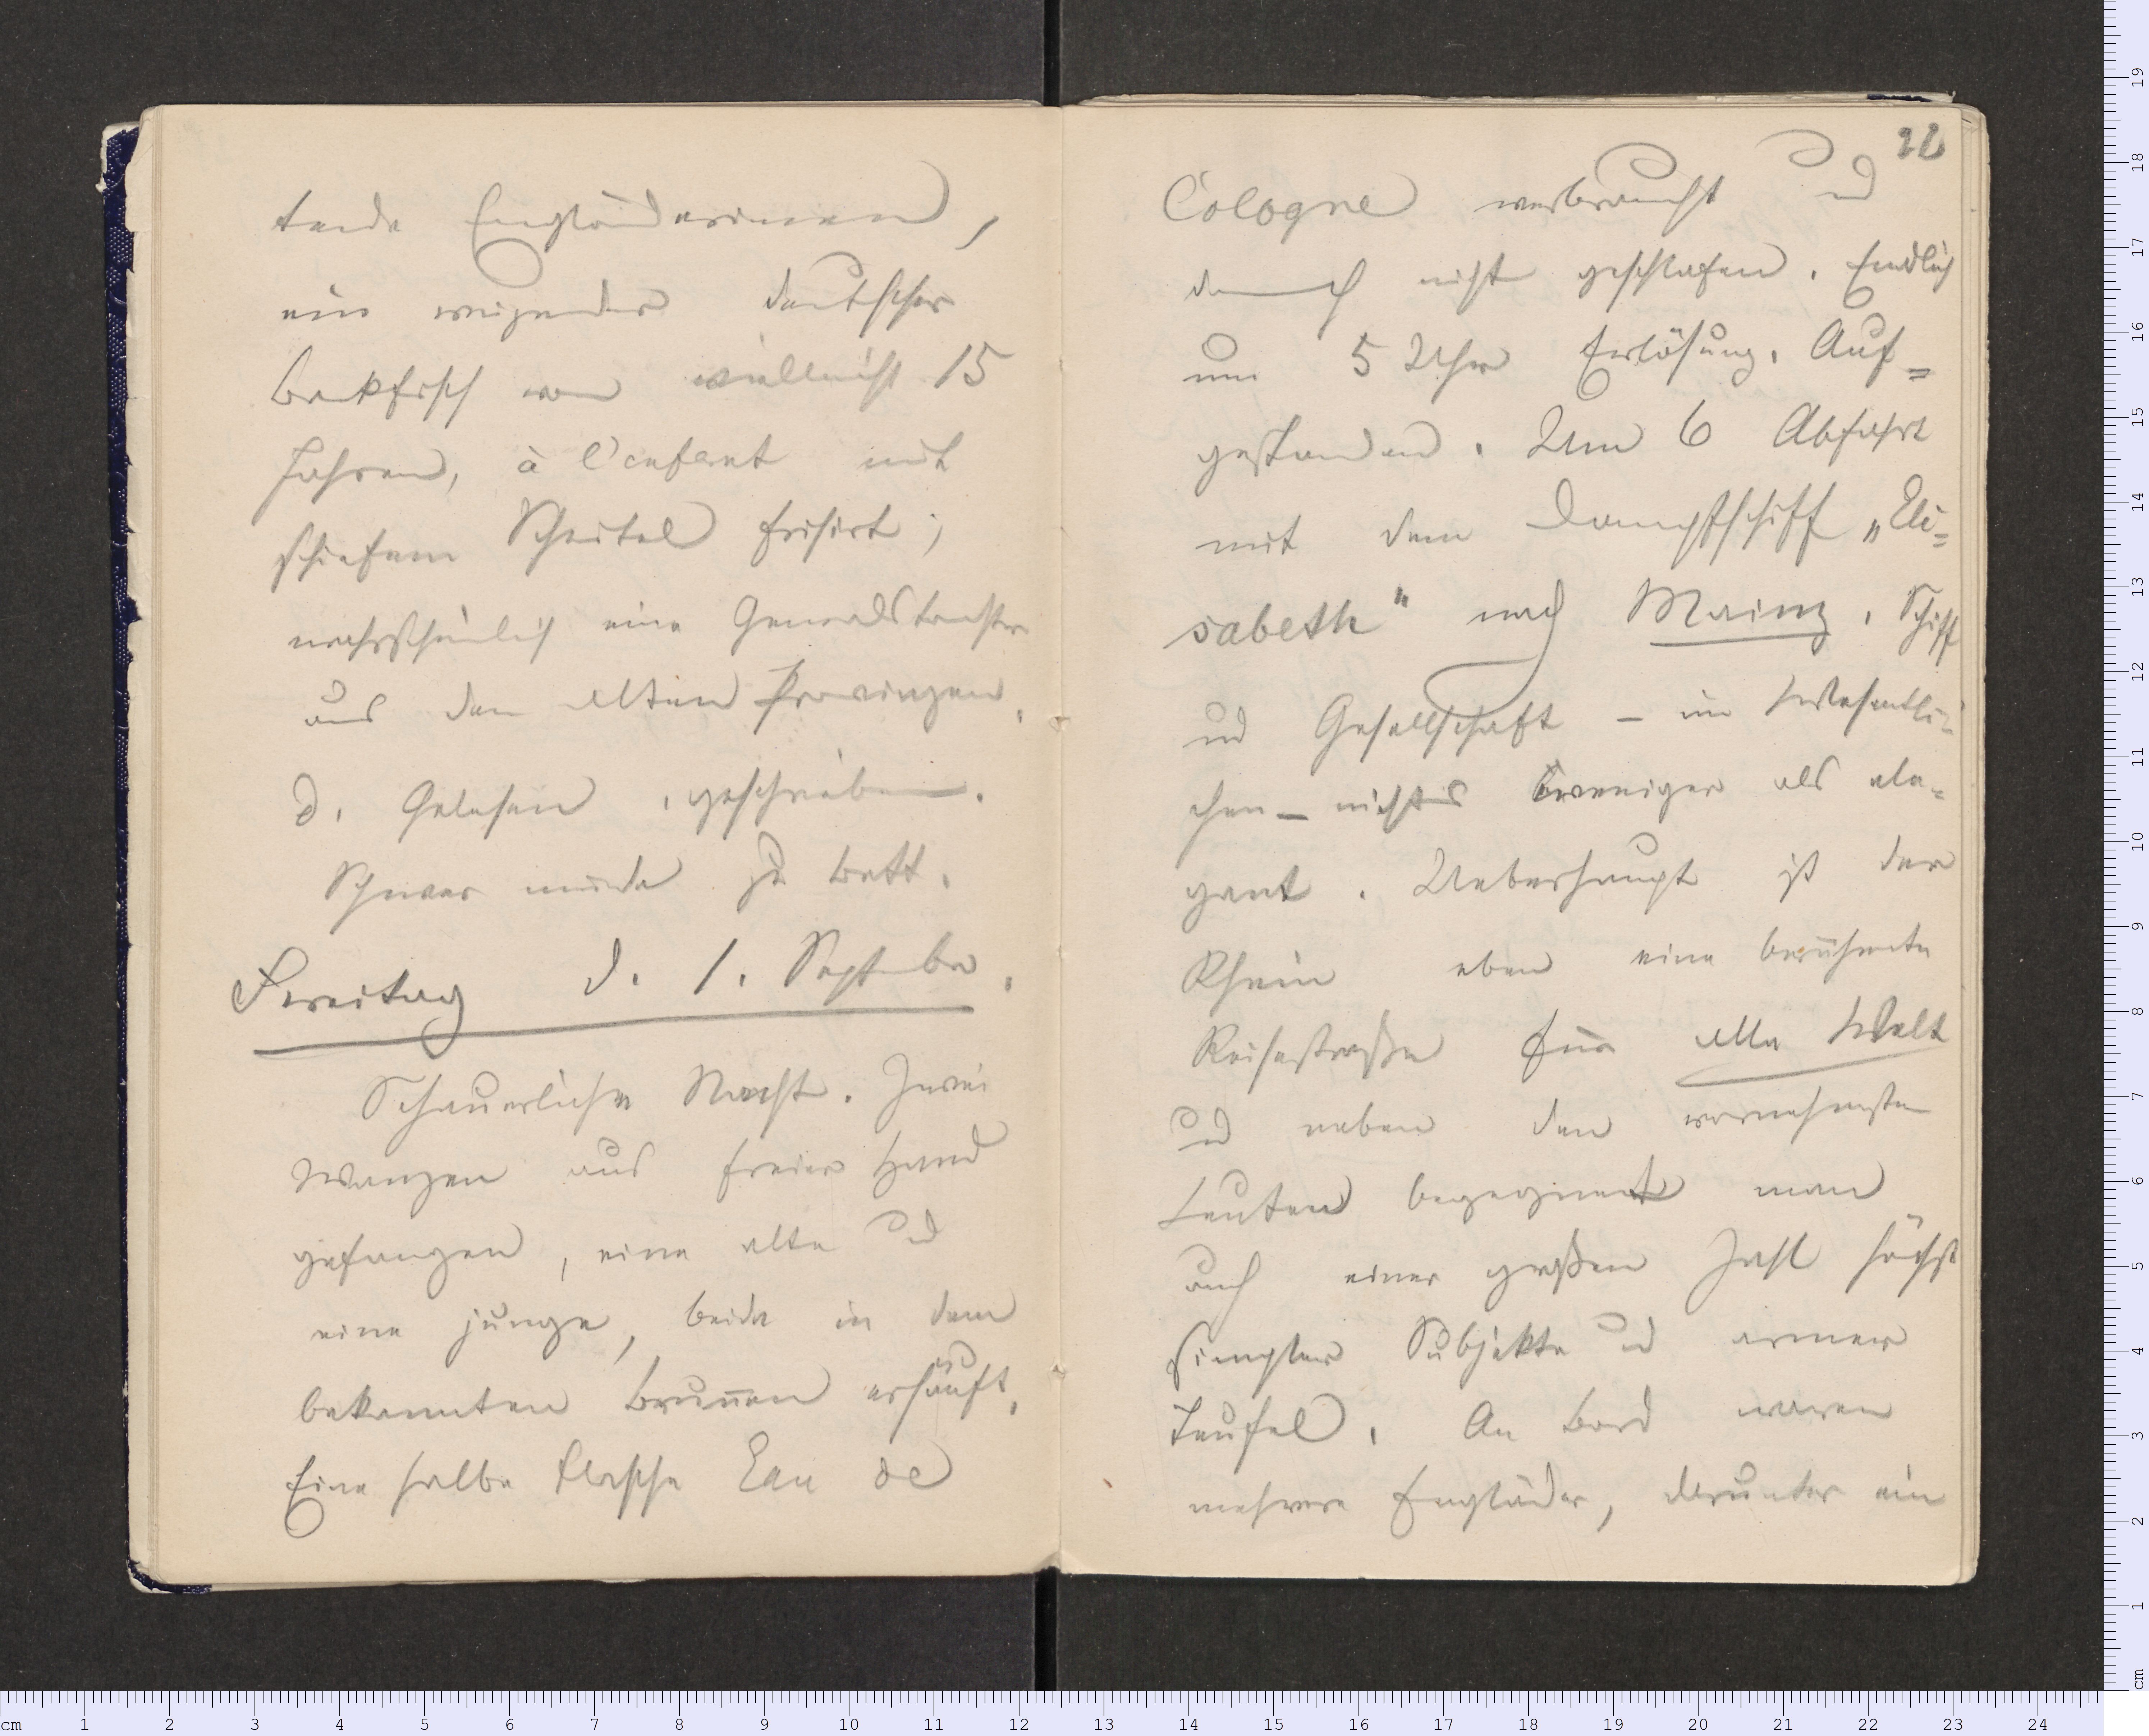 tende Engländerinnen,
ein reizender deutscher
Backfisch von vielleicht 15
Jahren, à l'enfant mit
schiefem Scheitel frisirt;
wahrscheinlich eine Generalstochter
aus den alten Provinzen.
D. Gelesen, geschrieben.
Schwer müde zu Bett.
Freitag d. 1. September.
Schauerliche Nacht. Zwei
Wanzen aus freier Hand
gefangen, eine alte und
eine junge, beide in dem
bekannten Brunnen ersäuft.
Eine halbe Flasche Eau de
22
Cologne verbraucht und
dennoch nicht geschlafen. Endlich
um 5 Uhr Erlösung. Auf=
gestanden. Um 6 Abfahrt
mit dem Dampfschiff „Eli=
sabeth" nach Mainz. Schiff
und Gesellschaft – im Wesentli=
chen – nichts weniger als ele=
gant. Ueberhaupt ist der
Rhein eben eine berühmte
Reisestraße für alle Welt
und neben den vornehmsten
Leuten begegnet man
auch einer großen Zahl höchst
simpler Subjekte und armer
Teufel. An Bord waren
mehrere Engländer, darunter ein